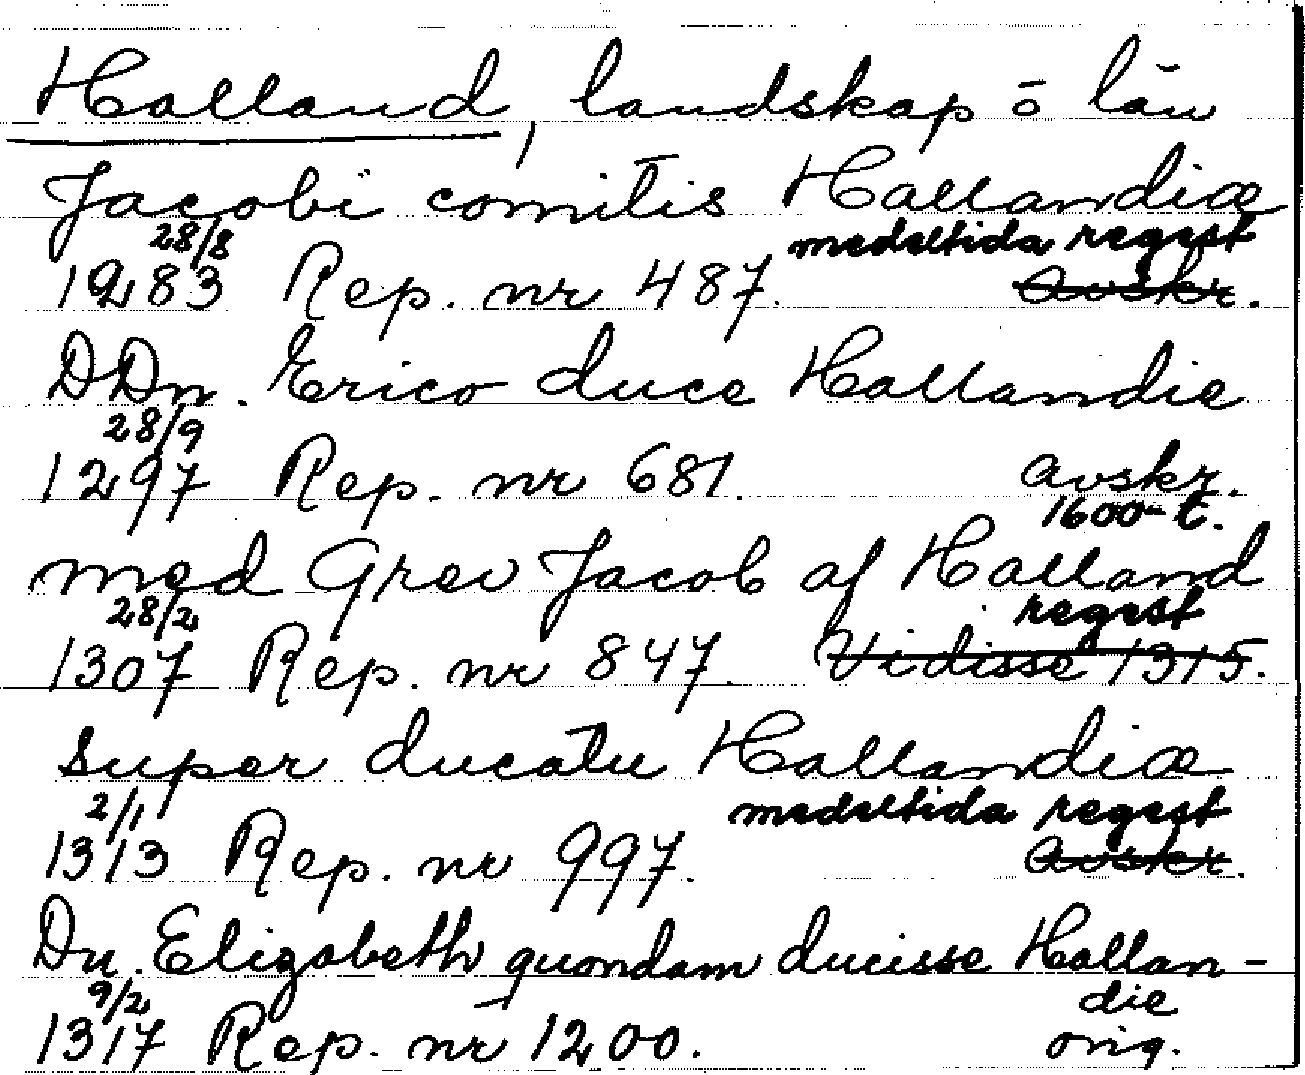 Halland, landskap o län
Jacobi comitis Hallandiæ
28/8 medeltida regest
1283 Rep. nr 487. Avskr.
DDn. Erico duce Hallandie
28/9
1297 Rep. nr 681. Avskr.
1600-t.
med Grev Jacob af Halland
28/2 regest
1307 Rep. nr 847. Vidisse 1315.
super ducatu Hallandiæ
2/1 medeltida regest
1313 Rep. nr 997. Avskr.
Dn. Elizabeth quondam ducisse Hallan-
9/2 die
1317 Rep. nr 1200. orig.